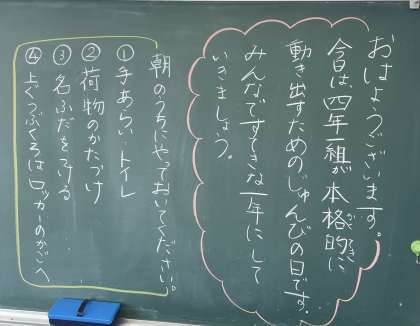 おはようございます。
今日は、四年一組が本格的に
動き出すためのじゅんびの日です。
みんなですてきな一年にして
いきましょう。
朝のうちにやっておいてください。
①手あらい・トイレ
②荷物のかたづけ
③名ふだをつける
④上ぐつぶくろはロッカーのかごへ